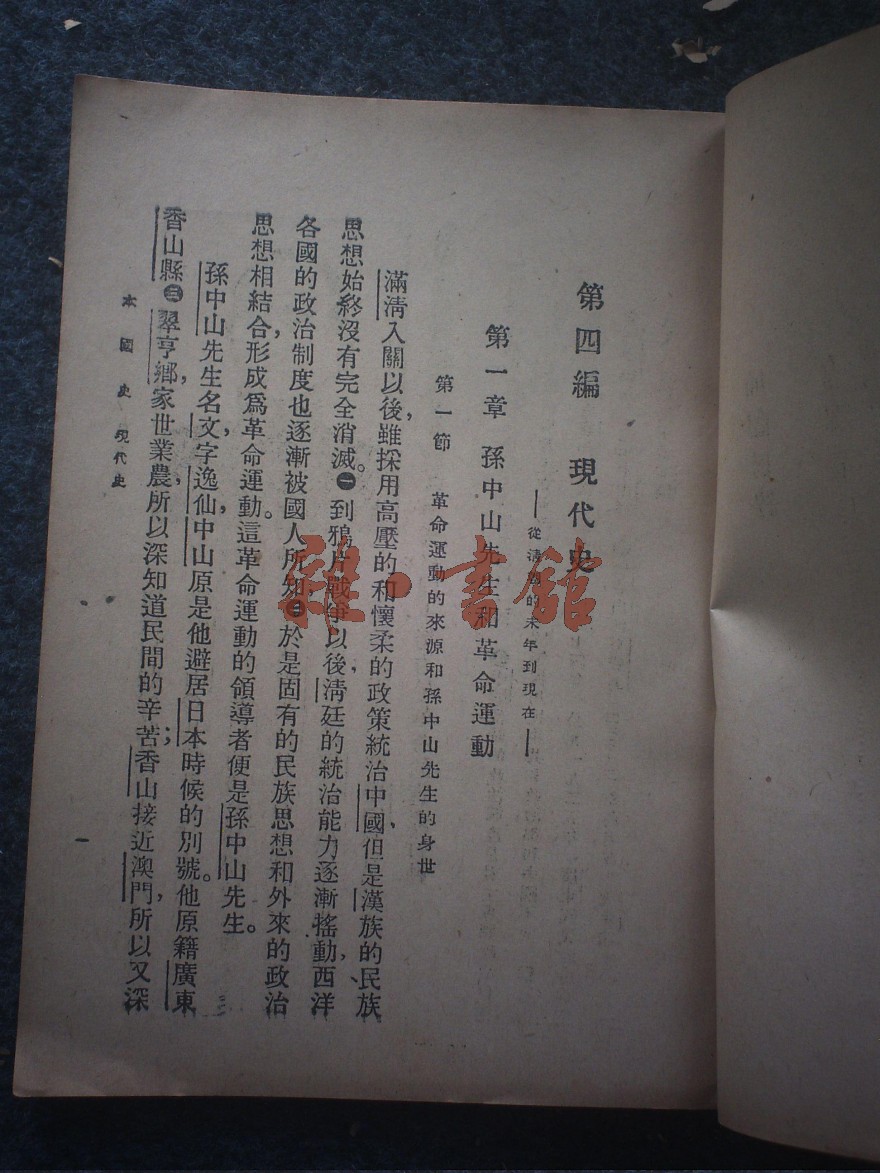 第四編　現代史
——從淸朝的末年到現在——
第一章　孫中山先生和革命運動
第一節　革命運動的來源和孫中山先生的身世
滿淸入關以後，雖採用高壓的和懷柔的政策統治中國，但是漢族的民族
思想始終沒有完全消滅。㊀到鴉片戰爭以後，淸廷的統治能力逐漸搖動，西洋
各國的政治制度也逐漸被國人所知㊁於是固有的民族思想和外來的政治
思想相結合，形成爲革命運動。這革命運動的領導者便是孫中山先生。
孫中山先生名文，字逸仙，中山原是他避居日本時候的別號。他原籍廣東
香山縣㊂翠亨鄉，家世業農，所以深知道民間的辛苦；香山接近澳門，所以又深
本國史　現代史
雜·書館